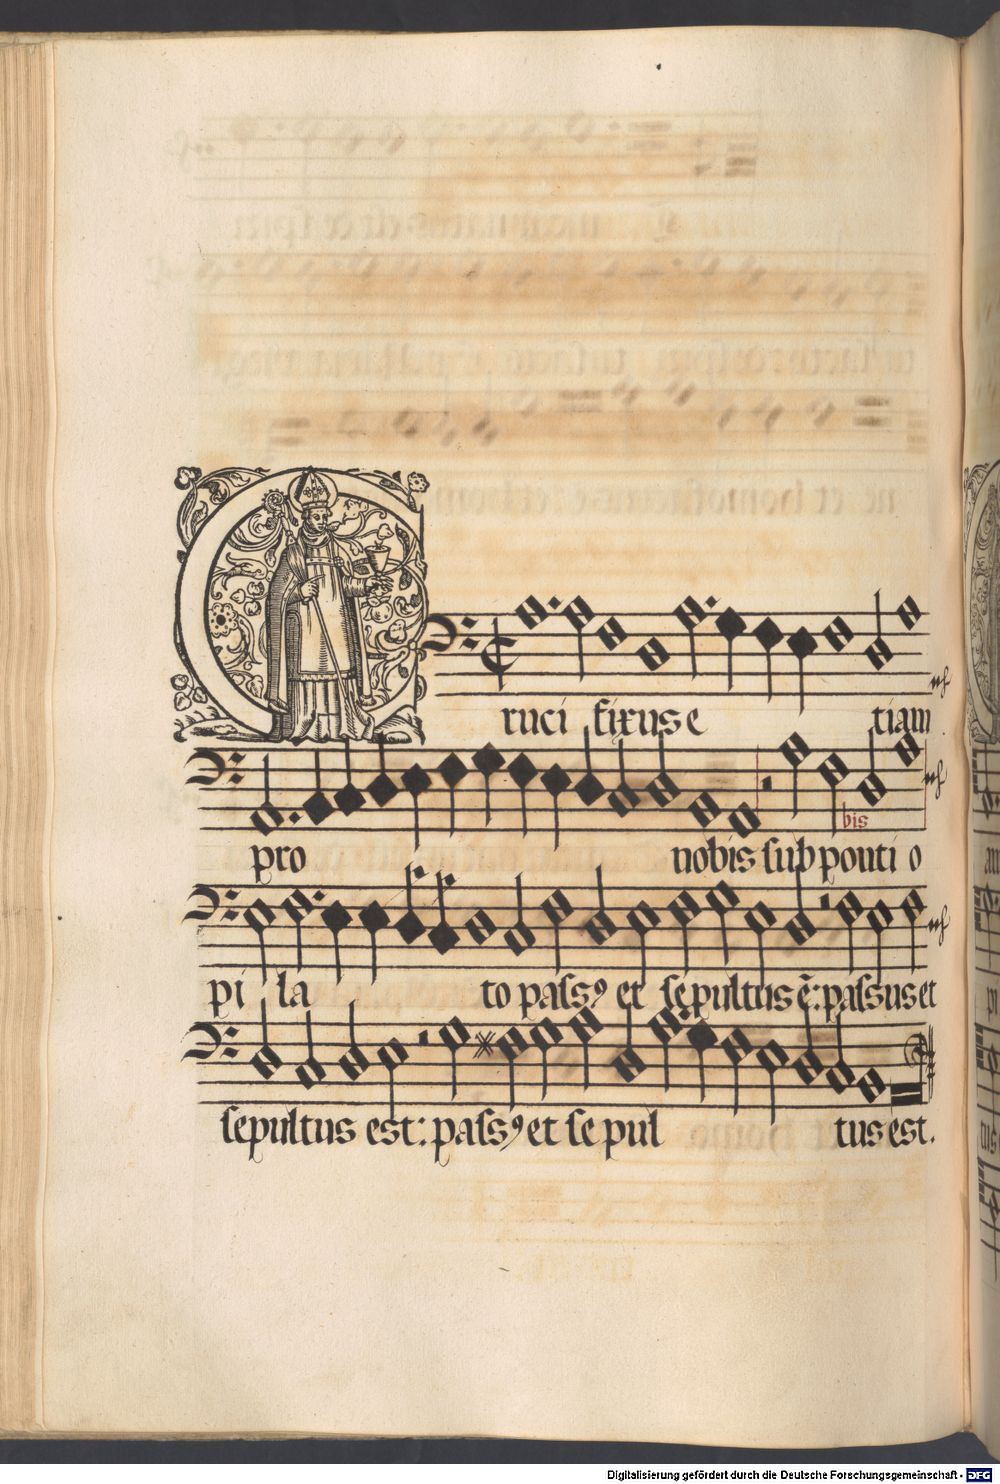 Cruci fixus e tiam
pro nobis sub ponti o
bis
pi la to passꝰ et sepultus ē: passus et
sepultus est: passꝰ et se pul tus est.
Digitalisierung gefördert durch die Deutsche Forschungsgemeinschaft - DFG